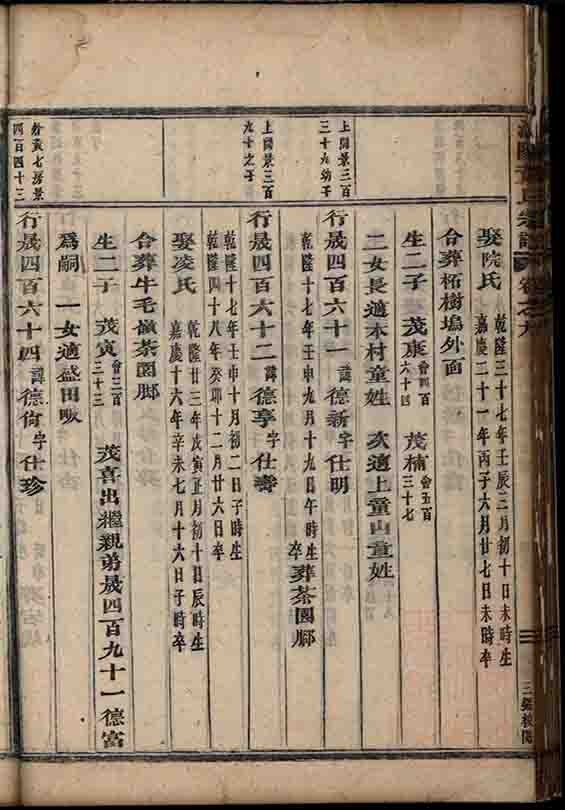 娶阮氏 乾隆三十七年壬辰三月初十日未時生
嘉慶二十一年丙子六月廿七日未時卒
合葬柘樹塢外面
生二子 茂康 會四百
六十四 茂楠 會五百
三十七
二女長適本村童姓 次適上童山童姓
上閏景三百
三十六幼子
行晟四百六十一 諱德新字仕明
乾隆十七年壬申九月十九日午時生
卒 葬茶園脚
上閏景三百
九十之子
行晟四百六十二 諱德享字仕壽
乾隆十七年壬申十月初二日子時生
乾隆四十八年癸卯十二月廿六日卒
娶凌氏 乾隆廿三年戊寅正月初十日辰時生
嘉慶十六年辛未七月十六日子時卒
合葬牛毛嶺茶園脚
生二子 茂寅 會三百
三十三 茂喜出繼親弟晟四百九十一德富
為嗣 一女適盛田畈
四百四十三
行晟四百六十四 諱德脩字仕珍